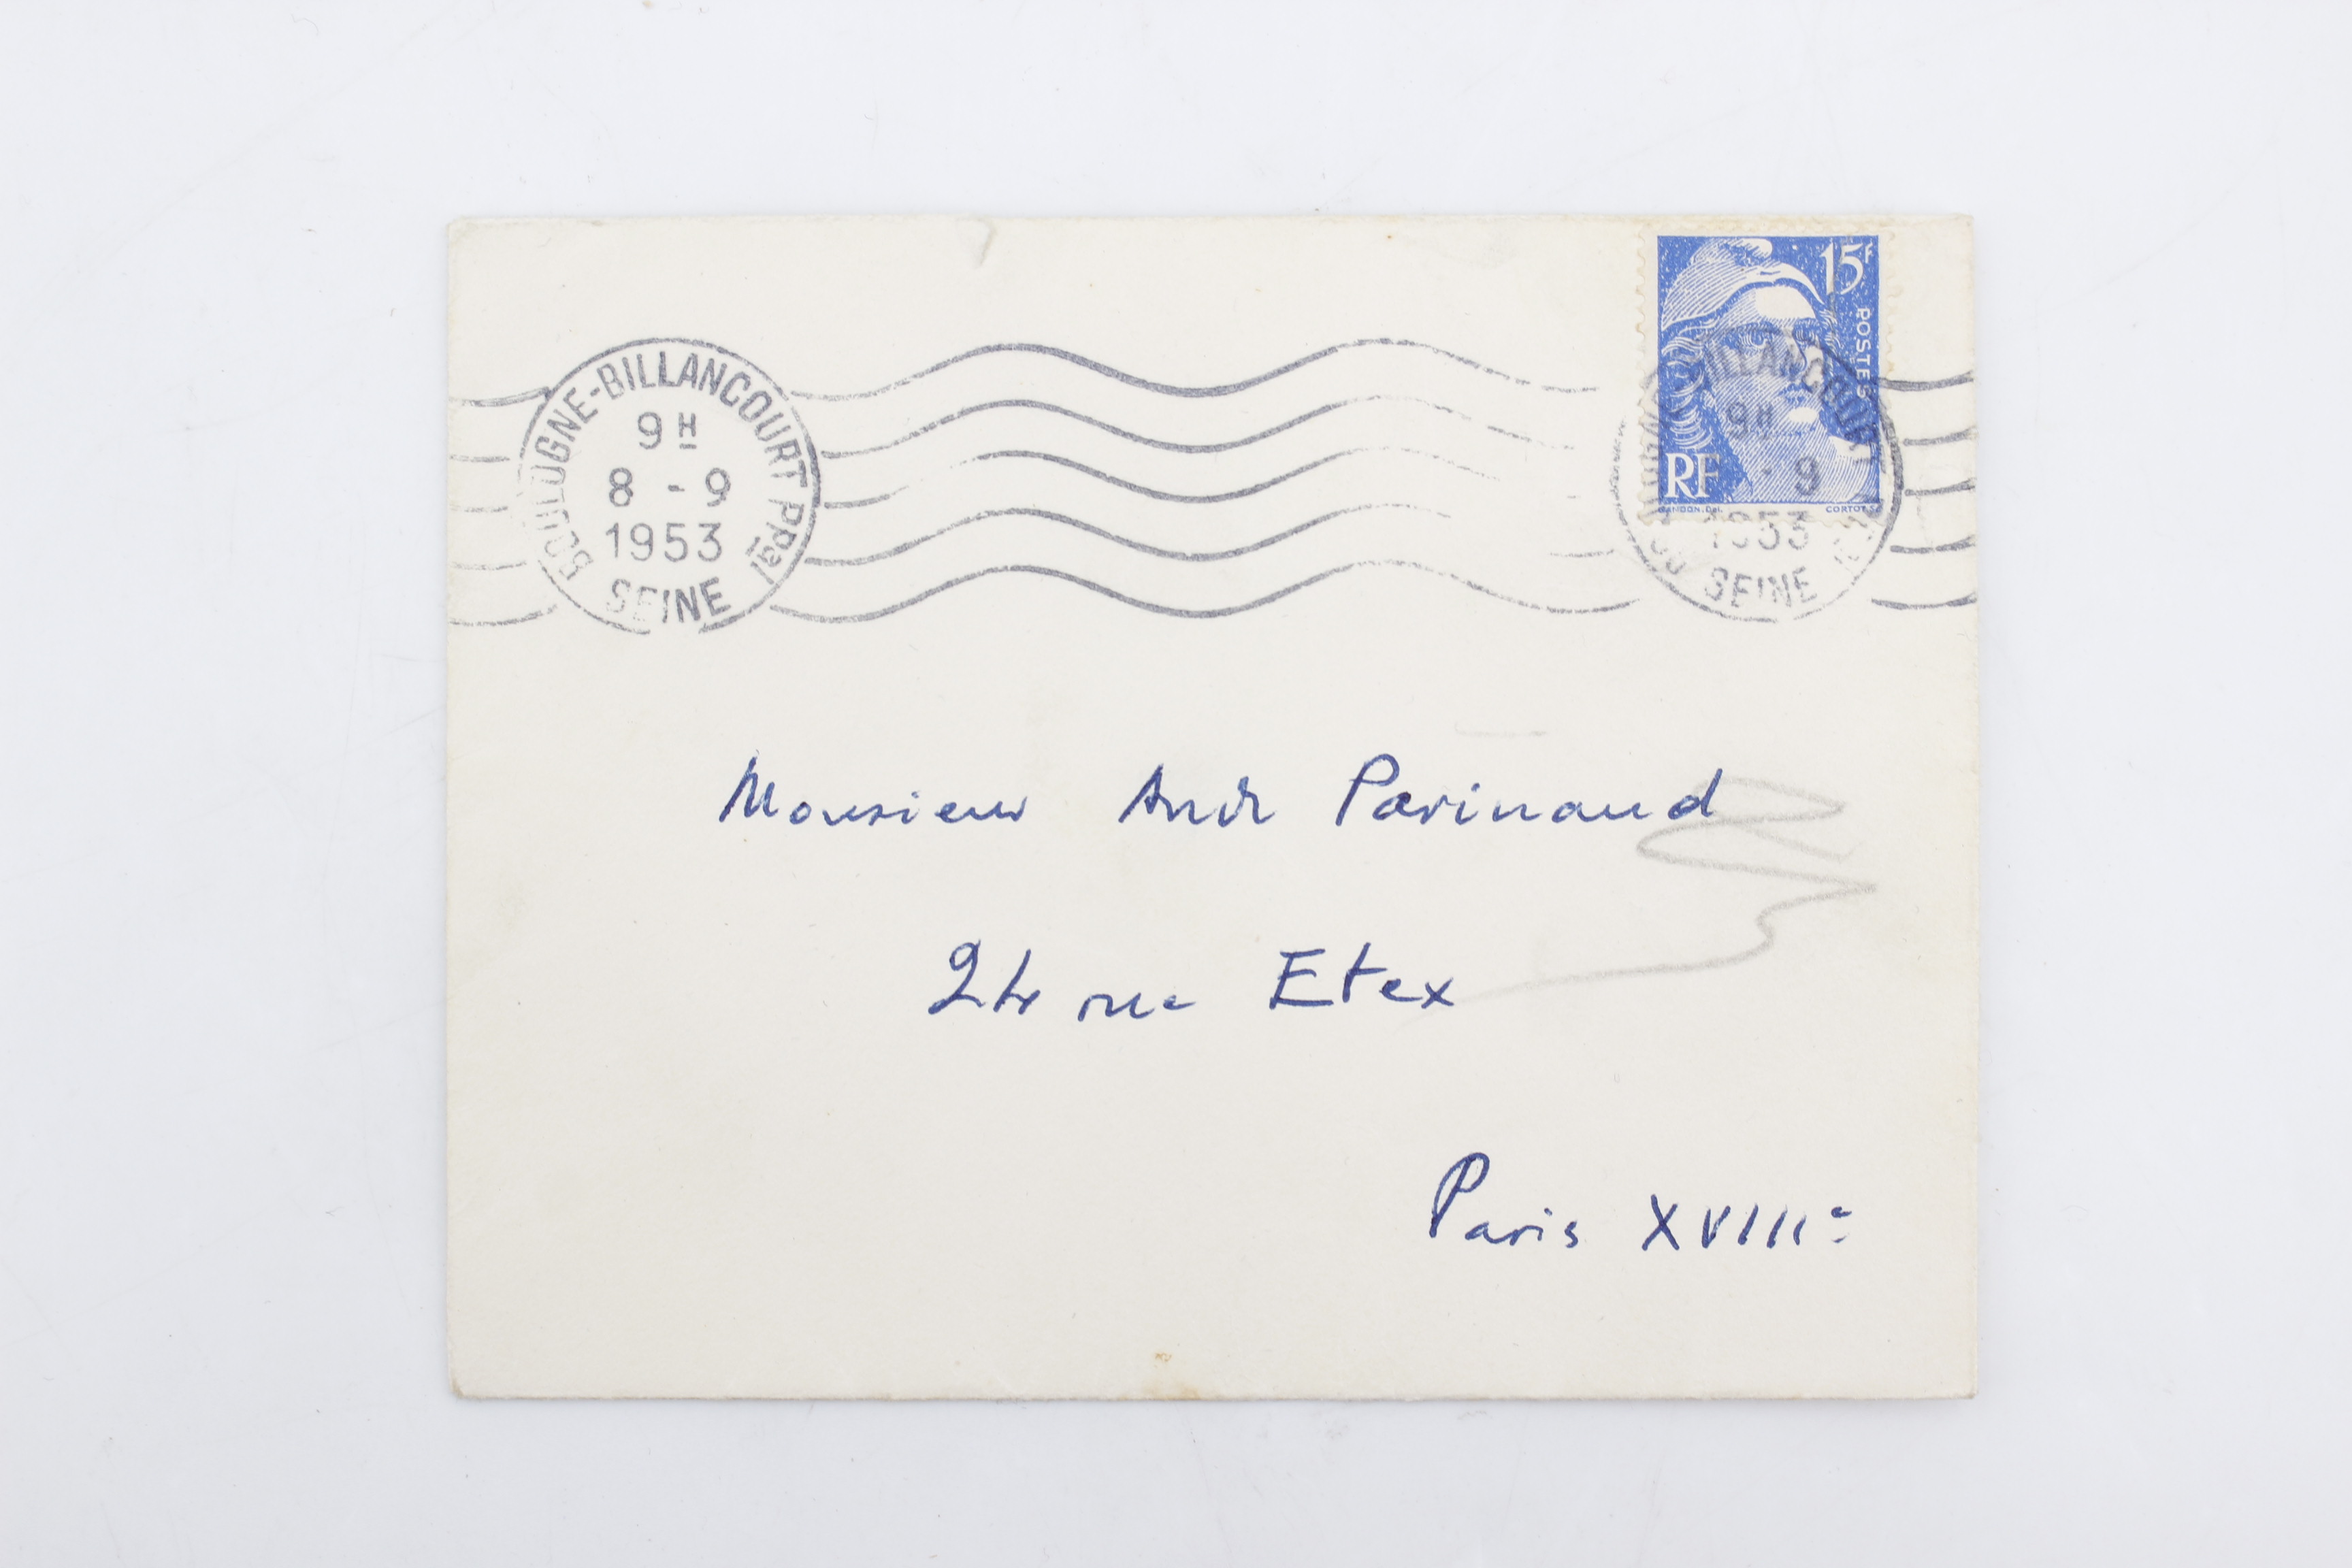 BOULOGNE-BILLANCOURT Ppal
9H
8 - 9
1953
SEINE
15F
POSTES
RF
GANDON.Del. CORTOT.Sc
BILLANCOURT
9H
- 9
1953
SEINE
Monsieur André Parinaud
24 rue Etex
Paris XVIIIe